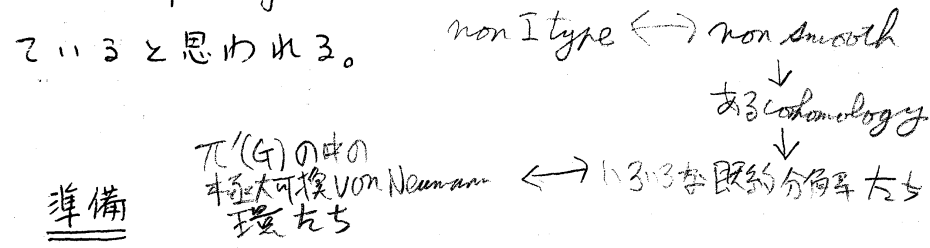 ていると思われる。
non I type ↔ non smooth
↓
ある cohomology
↓
π'(G)の中の
極大可換 von Neumann ↔ いろいろな既約分解たち
環たち
準備